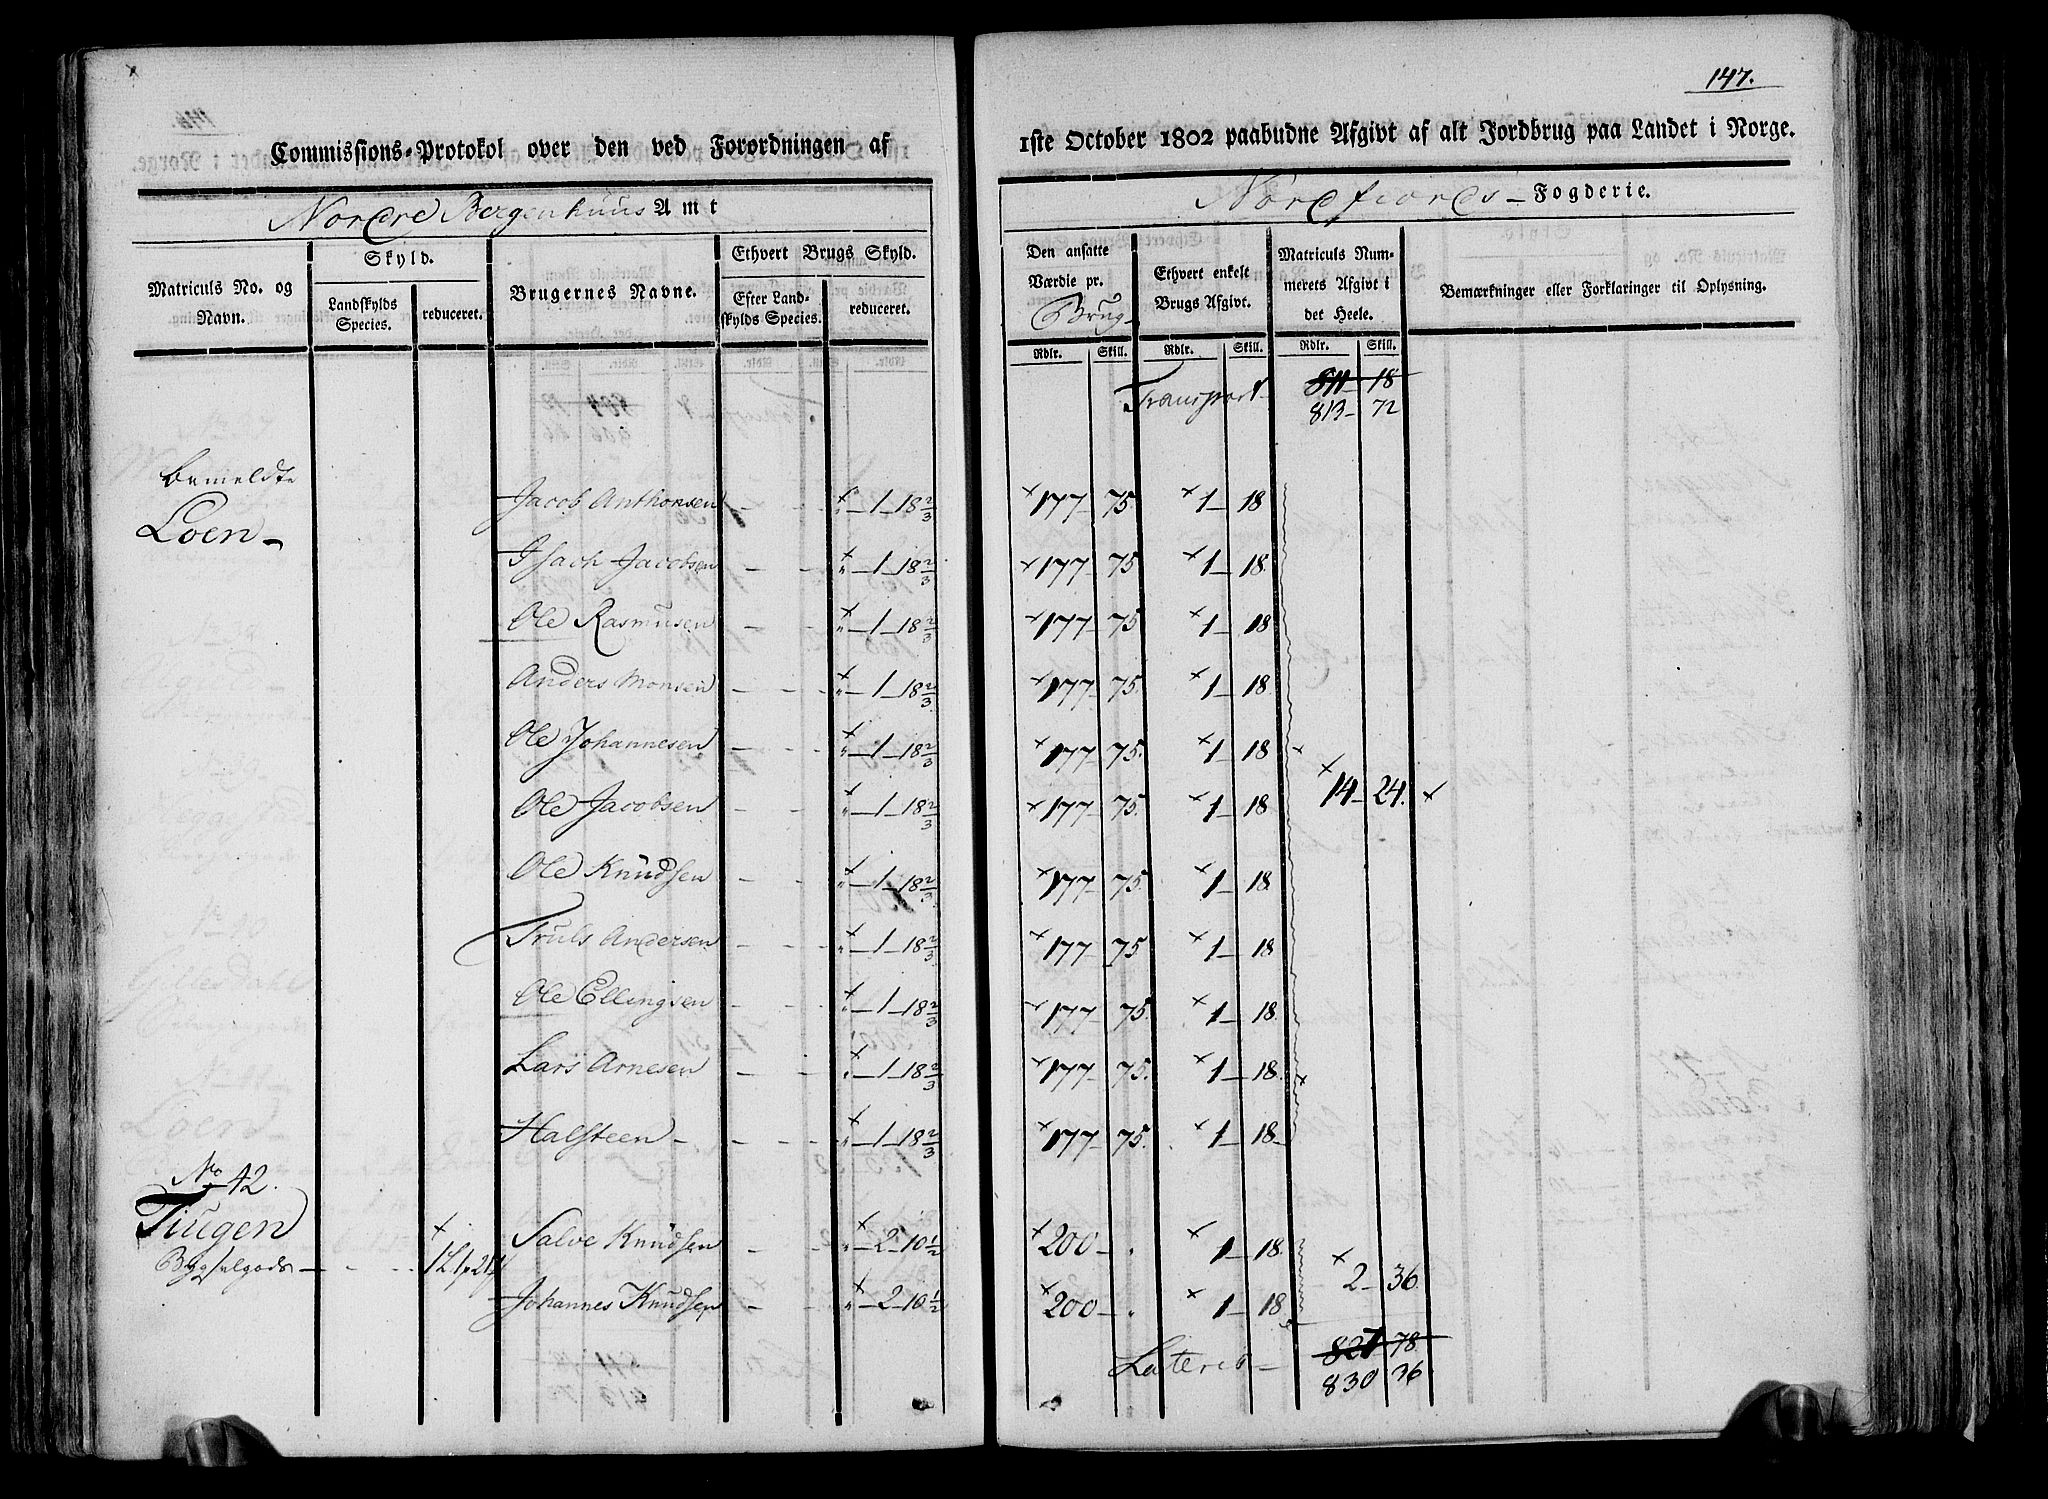 147.
Commissions-Protokol over den ved Forordningen af 1ste October 1802 paabudne Afgivt af alt Jordbrug paa Landet i Norge.
Nordre Bergenhuus Amt
Nordfiords - Fogderie.
Matriculs No. og Navn.
Skyld.
Landskylds Species.
reduceret.
Brugernes Navne.
Ethvert Brugs Skyld.
Efter Landskylds Species.
reduceret.
Den ansatte Værdie pr. Brug
Ethvert enkelt Brugs Afgivt.
Matriculs Nummerets Afgivt i det Heele.
Bemærkninger eller Forklaringer til Oplysning.
Rdlr. Skill. Rdlr. Skill. Rdlr. Skill.
Transport 811 - 18
813 - 72
bemeldte
Loen -
Jacob Anthonsen - - " - 1 - 18 2/3 177 - 75. 1 - 18
Isach Jacobsen - - " - 1 - 18 2/3 177 - 75 1 - 18
Ole Rasmusen - - " - 1 - 18 2/3 177 - 75 1 - 18
Anders Monsen - - " - 1 - 18 2/3 177 - 75. 1 - 18
Ole Johannesen - - " - 1 - 18 2/3 177 - 75. 1 - 18
Ole Jacobsen - - " - 1 - 18 2/3 177 - 75. 1 - 18 14 - 24.
Ole Knudsen - - " - 1 - 18 2/3 177 - 75. 1 - 18
Truls Andersen - - " - 1 - 18 2/3 177 - 75. 1 - 18
Ole Ellingsen - - " - 1 - 18 2/3 177 - 75. 1 - 18.
Lars Arnesen - - " - 1 - 18 2/3 177 - 75. 1 - 18.
Halsteen - - - " - 1 - 18 2/3 177 - 75. 1 - 18 -
No 42.
Tiugen
Bygselgods - - -
Salve Knudsen - - " - 2 - 10 1/2 200 - " 1 - 18. 2 - 36.
Johannes Knudsen - - " - 2 - 10 1/2 200 - " 1 - 18
Lateris - 827 - 78
830 36